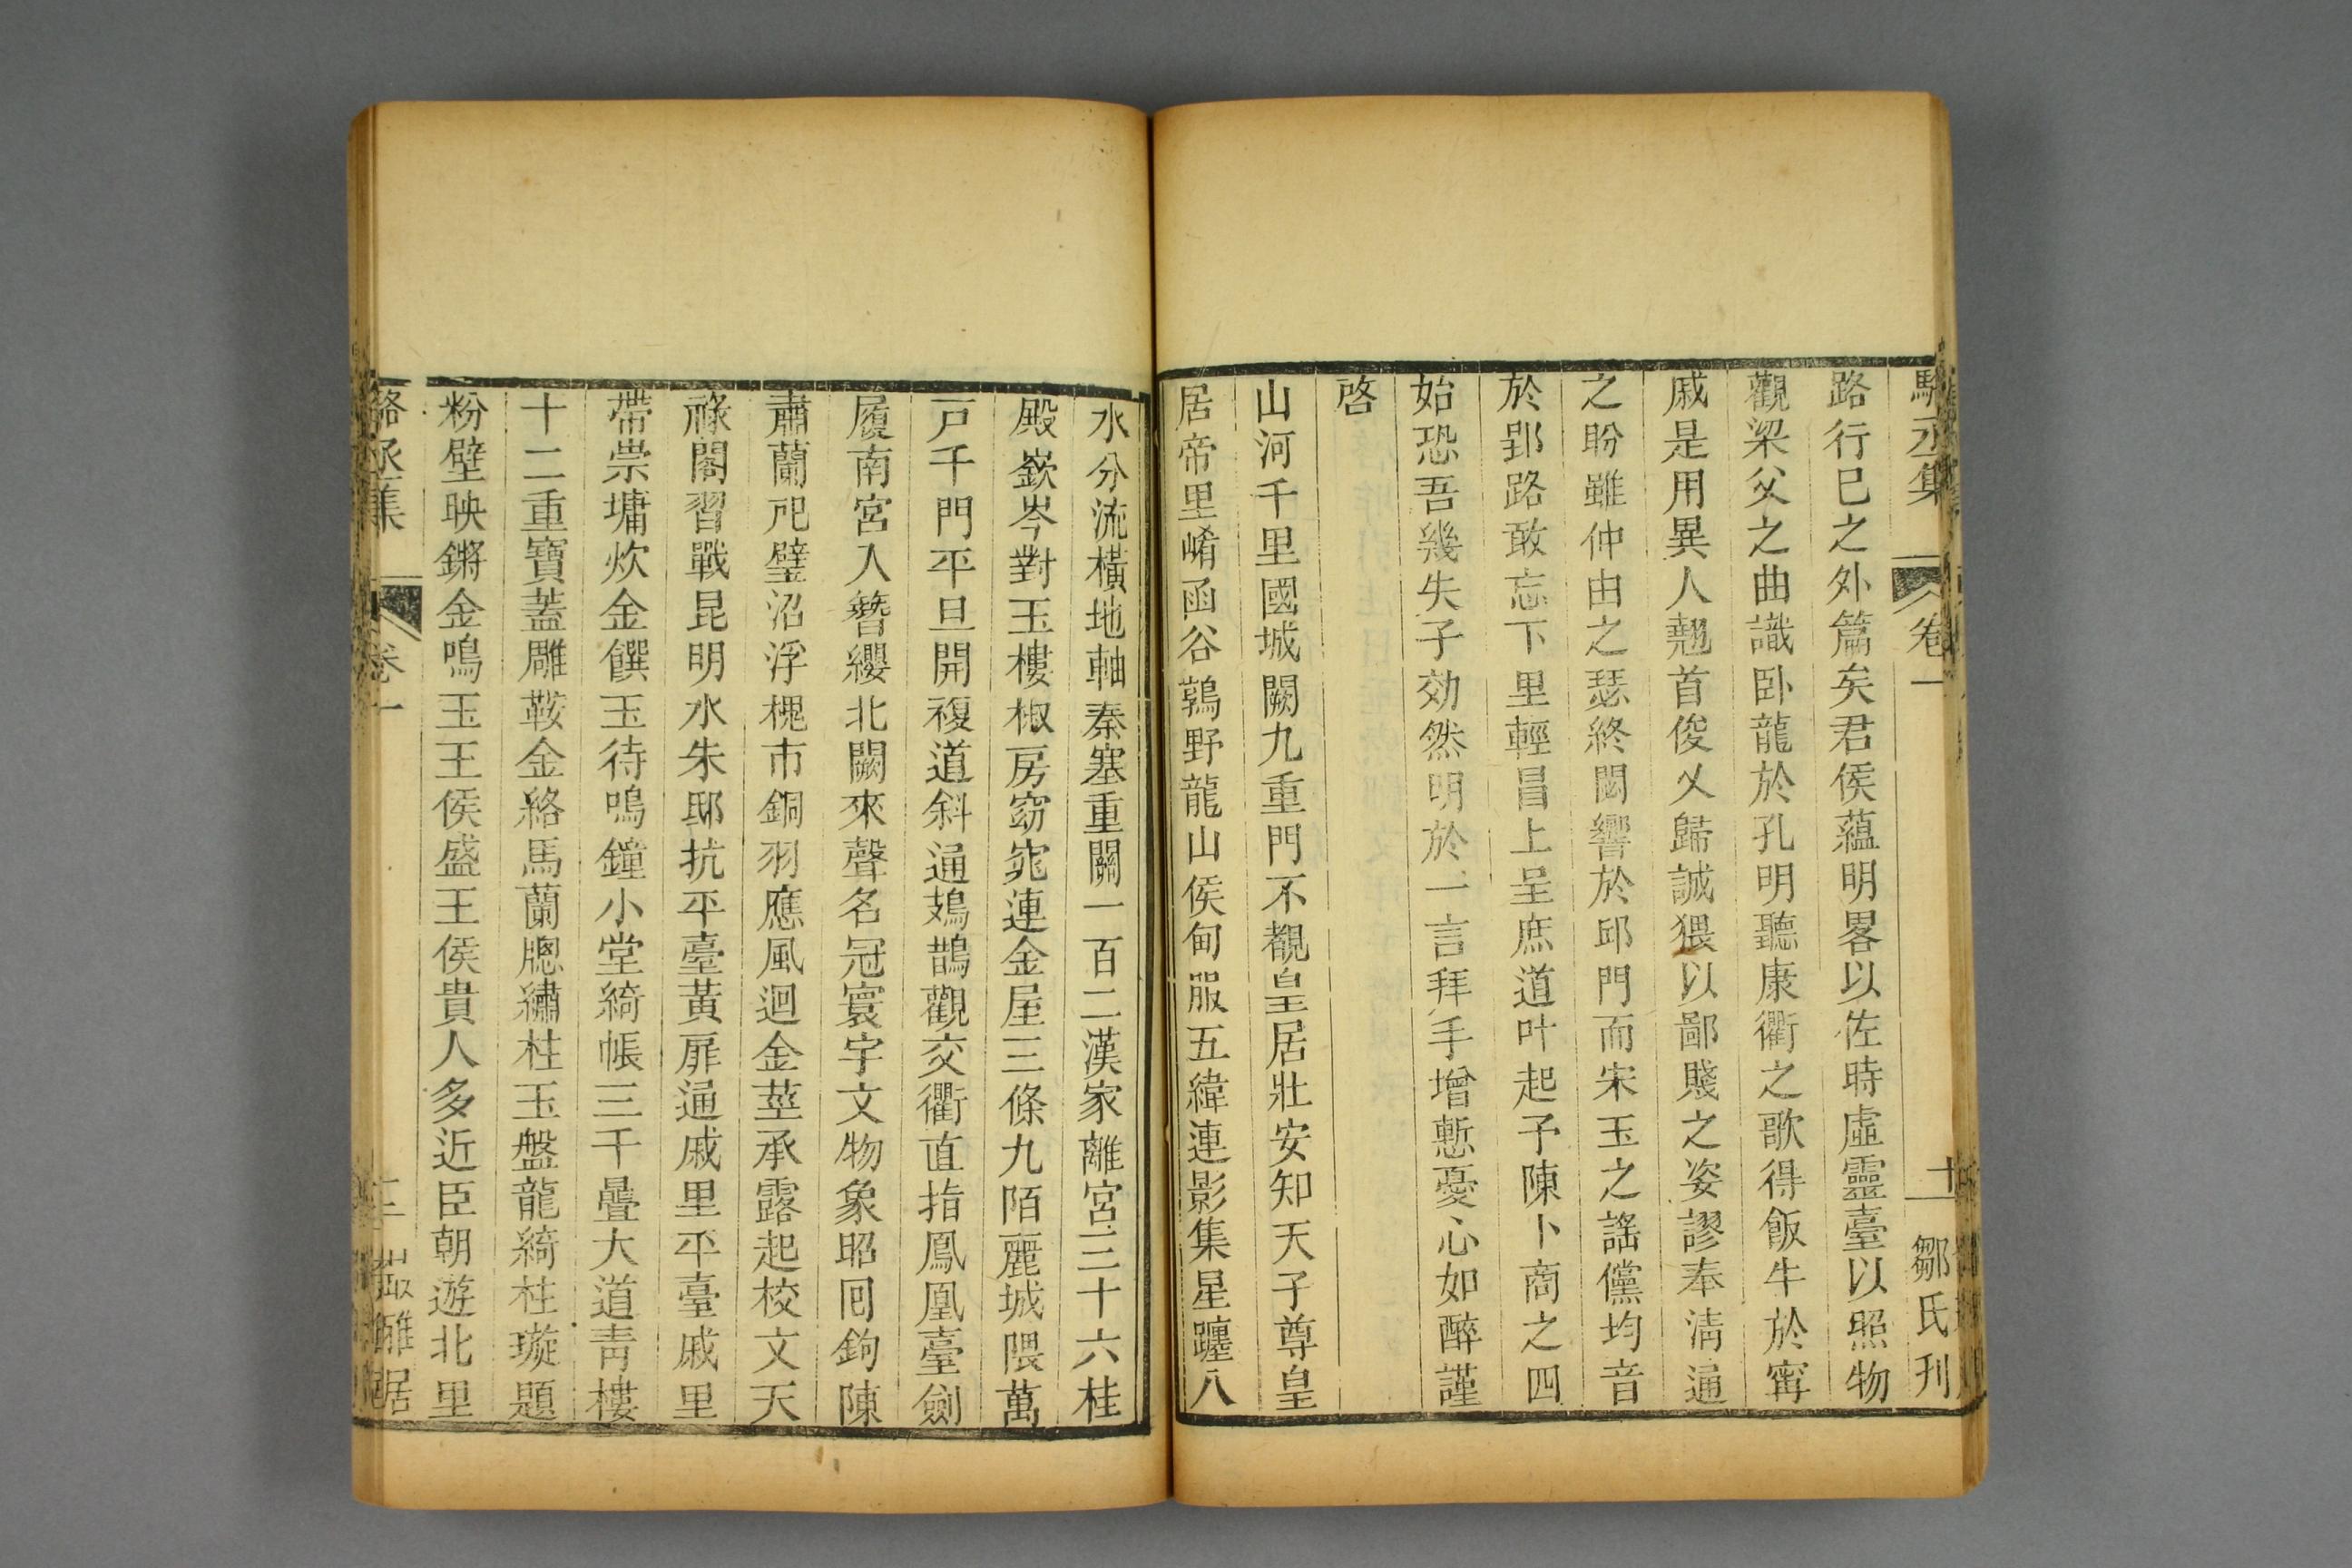 駱丞集 卷一 十 鄒氏刊
路行已之外篇矣君侯蘊明畧以佐時虛靈臺以照物
觀梁父之曲識卧龍於孔明聽康衢之歌得飯牛於甯
戚是用異人翹首俊乂歸誠猥以鄙賤之姿謬奉淸通
之盼雖仲由之瑟終閟響於邱門而宋玉之謠儻均音
於郢路敢忘下里輕冒上呈庶道叶起予陳卜商之四
始恐吾幾失子効然明於一言拜手增慙憂心如醉謹
啓
山河千里國城闕九重門不覩皇居壯安知天子尊皇
居帝里崤函谷鶉野龍山侯甸服五緯連影集星躔八
水分流橫地軸秦塞重關一百二漢家離宮三十六桂
殿嶔岑對玉樓椒房窈窕連金屋三條九陌麗城隈萬
戸千門平旦開複道斜通鳷鵲觀交衢直指鳳凰臺劍
履南宮入簪纓北闕來聲名冠寰宇文物象昭囘鉤陳
肅蘭戺璧沼浮槐市銅羽應風迴金莖承露起校文天
祿閣習戰昆明水朱邸抗平臺黃扉通戚里平臺戚里
帶崇墉炊金饌玉待鳴鐘小堂綺帳三千疊大道靑樓
十二重寶蓋雕鞍金絡馬蘭牕繡柱玉盤龍綺柱璇題
粉壁映鏘金鳴玉王侯盛王侯貴人多近臣朝遊北里
駱丞集 卷一